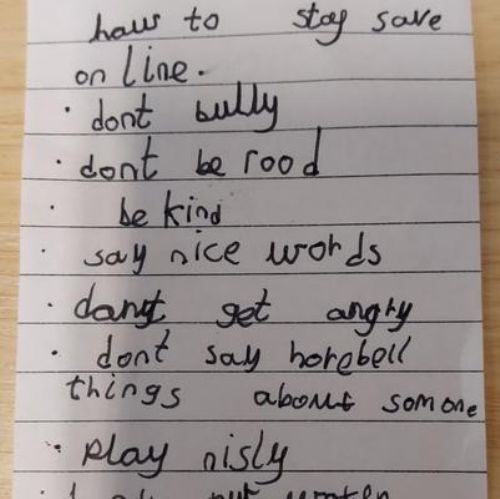 haw to stay save
on line.
· dont bully
· dont be rood
· be kind
· say nice words
· dant get angry
· dont say horebell
things about somone
· play nisly